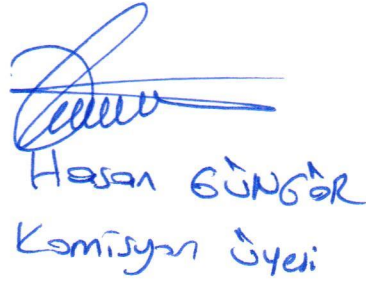 Hasan GÜNGÖR
Komisyon Üyesi